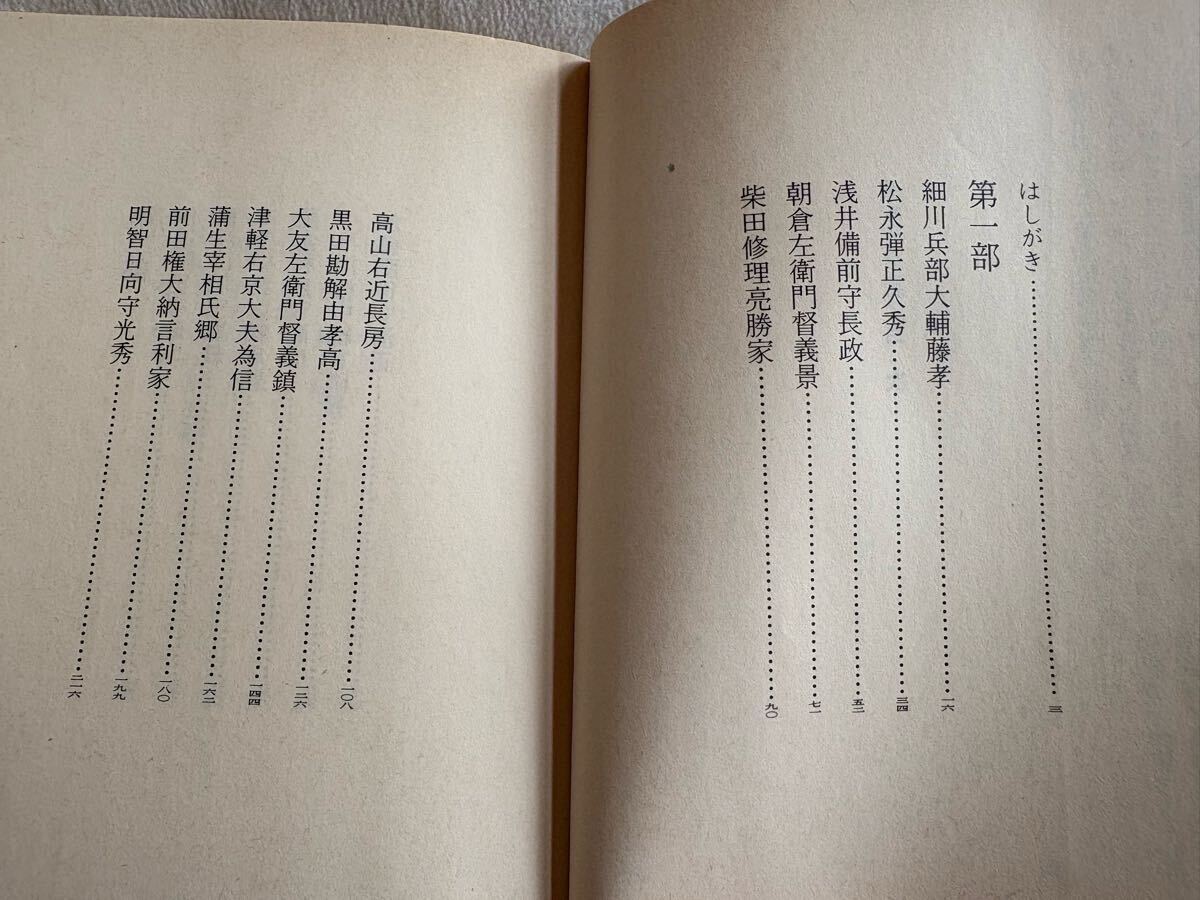 はしがき……三
第一部
細川兵部大輔藤孝……一六
松永弾正久秀……三四
浅井備前守長政……五二
朝倉左衛門督義景……七一
柴田修理亮勝家……九〇
高山右近長房……一〇八
黒田勘解由孝高……一二六
大友左衛門督義鎮……一四四
津軽右京大夫為信……一六二
蒲生宰相氏郷……一八〇
前田権大納言利家……一九九
明智日向守光秀……二一六